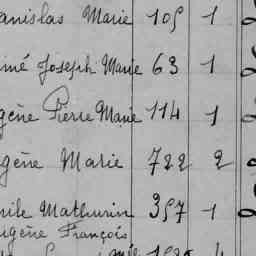 anislas Marie 105 1
imé Joseph Marie 63 1
gène Pierre Marie 114 1
gène Marie 722 2
mile Mathurin 357 1
ugène François